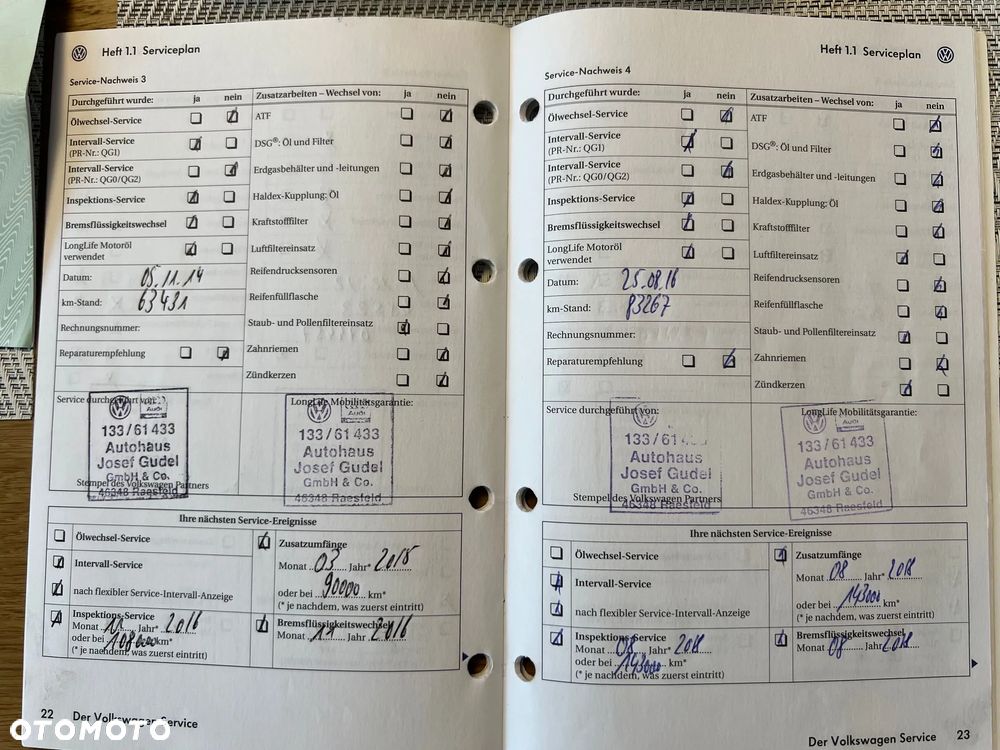 Heft 1.1 Serviceplan
Service-Nachweis 3
Durchgeführt wurde: ja nein
Ölwechsel-Service
Intervall-Service
(PR-Nr.: QG1)
Intervall-Service
(PR-Nr.: QG0/QG2)
Inspektions-Service
Bremsflüssigkeitswechsel
LongLife Motoröl
verwendet
Datum: 05.11.14
km-Stand: 63431
Rechnungsnummer:
Reparaturempfehlung
Zusatzarbeiten – Wechsel von: ja nein
ATF
DSG®: Öl und Filter
Erdgasbehälter und -leitungen
Haldex-Kupplung: Öl
Kraftstofffilter
Luftfiltereinsatz
Reifendrucksensoren
Reifenfüllflasche
Staub- und Pollenfiltereinsatz
Zahnriemen
Zündkerzen
Service durchgeführt von:
133/61 433
Autohaus
Josef Gudel
GmbH & Co.
46348 Raesfeld
Stempel des Volkswagen Partners
LongLife Mobilitätsgarantie:
Audi
133/61 433
Autohaus
Josef Gudel
GmbH & Co.
46348 Raesfeld
Ihre nächsten Service-Ereignisse
Ölwechsel-Service
Intervall-Service
nach flexibler Service-Intervall-Anzeige
Inspektions-Service
Monat 11 Jahr* 2016
oder bei 108000 km*
(* je nachdem, was zuerst eintritt)
Zusatzumfänge
Monat 03 Jahr* 2015
oder bei 90000 km*
(* je nachdem, was zuerst eintritt)
Bremsflüssigkeitswechsel
Monat 11 Jahr 2016
22 Der Volkswagen Service
OTOMOTO
Heft 1.1 Serviceplan
Service-Nachweis 4
Durchgeführt wurde: ja nein
Ölwechsel-Service
Intervall-Service
(PR-Nr.: QG1)
Intervall-Service
(PR-Nr.: QG0/QG2)
Inspektions-Service
Bremsflüssigkeitswechsel
LongLife Motoröl
verwendet
Datum: 25.08.16
km-Stand: 83267
Rechnungsnummer:
Reparaturempfehlung
Zusatzarbeiten – Wechsel von: ja nein
ATF
DSG®: Öl und Filter
Erdgasbehälter und -leitungen
Haldex-Kupplung: Öl
Kraftstofffilter
Luftfiltereinsatz
Reifendrucksensoren
Reifenfüllflasche
Staub- und Pollenfiltereinsatz
Zahnriemen
Zündkerzen
Service durchgeführt von:
133/61
Autohaus
Josef Gudel
GmbH & Co.
46348 Raesfeld
Stempel des Volkswagen Partners
LongLife Mobilitätsgarantie:
Audi
133/61 433
Autohaus
Josef Gudel
GmbH & Co.
46348 Raesfeld
Ihre nächsten Service-Ereignisse
Ölwechsel-Service
Intervall-Service
nach flexibler Service-Intervall-Anzeige
Inspektions-Service
Monat 08 Jahr* 2018
oder bei 143000 km*
(* je nachdem, was zuerst eintritt)
Zusatzumfänge
Monat 08 Jahr* 2018
oder bei 143000 km*
(* je nachdem, was zuerst eintritt)
Bremsflüssigkeitswechsel
Monat 08 Jahr 2018
Der Volkswagen Service 23